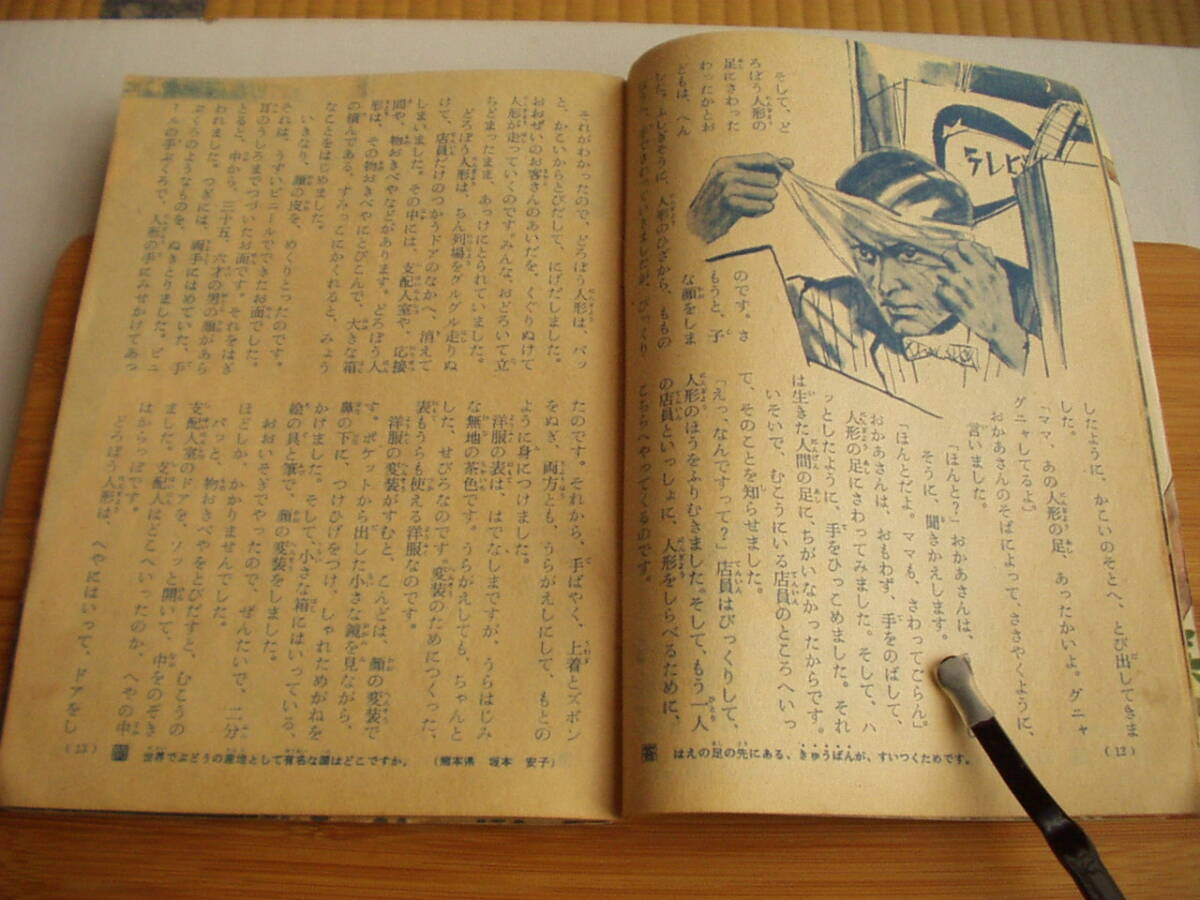 テレビ
そして、ど
ろぼう人形の
足にさわった
わったかとお
どもは、へん
のです。さ
もうと、子
な顔をしま
した。ふしぎそうに、人形のひざから、ももの
したように、かこいのそとへ、とび出してきま
した。
「ママ、あの人形の足、あったかいよ。グニャ
グニャしてるよ」
おかあさんのそばによって、ささやくように、
言いました。
「ほんと？」おかあさんは、
そうに、聞きかえします。
「ほんとだよ。ママも、さわってごらん」
おかあさんは、おもわず、手をのばして、
人形の足にさわってみました。そして、ハ
ッとしたように、手をひっこめました。それ
は生きた人間の足に、ちがいなかったからです。
いそいで、むこうにいる店員のところへいっ
て、そのことを知らせました。
「えっ、なんですって？」店員はびっくりして、
人形のほうをふりむきました。そして、もう一人
の店員といっしょに、人形をしらべるために、
こちらへやってくるのです。
はえの足の先にある、きゅうばんが、すいつくためです。
(12)
それがわかったので、どろぼう人形は、パッ
と、かこいからとびだして、にげだしました。
おおぜいのお客さんのあいだを、くぐりぬけて
人形が走っていくのです。みんな、おどろいて立
ちどまったまま、あっけにとられていました。
どろぼう人形は、ちん列場をグルグル走りぬ
けて、店員だけのつかうドアのなかへ、消えて
しまいました。その中には、支配人室や、応接
間や、物おきべやなどがあります。どろぼう人
形は、その物おきべやにとびこんで、大きな箱
の積んである、すみっこにかくれると、みょう
なことをはじめました。
いきなり、顔の皮を、めくりとったのです。
それは、うすいビニールでできたお面でした。
耳のうしろまでつづいたお面です。それをはぎ
とると、中から、三十五、六才の男の顔があら
われました。つぎには、両手にはめていた、手
ぶくろのようなものを、ぬきとりました。ビニ
ールの手ぶくろで、人形の手にみせかけてあっ
たのです。それから、手ばやく、上着とズボン
をぬぎ、両方とも、うらがえしにして、もとの
ように身につけました。
洋服の表は、はでなしまですが、うらはじみ
な無地の茶色です。うらがえしても、ちゃんと
した、せびろなのです。変装のためにつくった、
表もうらも使える洋服なのです。
洋服の変装がすむと、こんどは、顔の変装で
す。ポケットから出した小さな鏡を見ながら、
鼻の下に、つけひげをつけ、しゃれためがねを
かけました。そして、小さな箱にはいっている、
絵の具と筆で、顔の変装をしました。
おおいそぎでやったので、ぜんたいで、二分
ほどしか、かかりませんでした。
パッと、物おきべやをとびだすと、むこうの
支配人室のドアを、ソッと開いて、中をのぞき
ました。支配人はどこへいったのか、へやの中
はからっぽです。
どろぼう人形は、へやにはいって、ドアをし
(13)
世界でぶどうの産地として有名な国はどこですか。
(熊本県 坂本 安子)